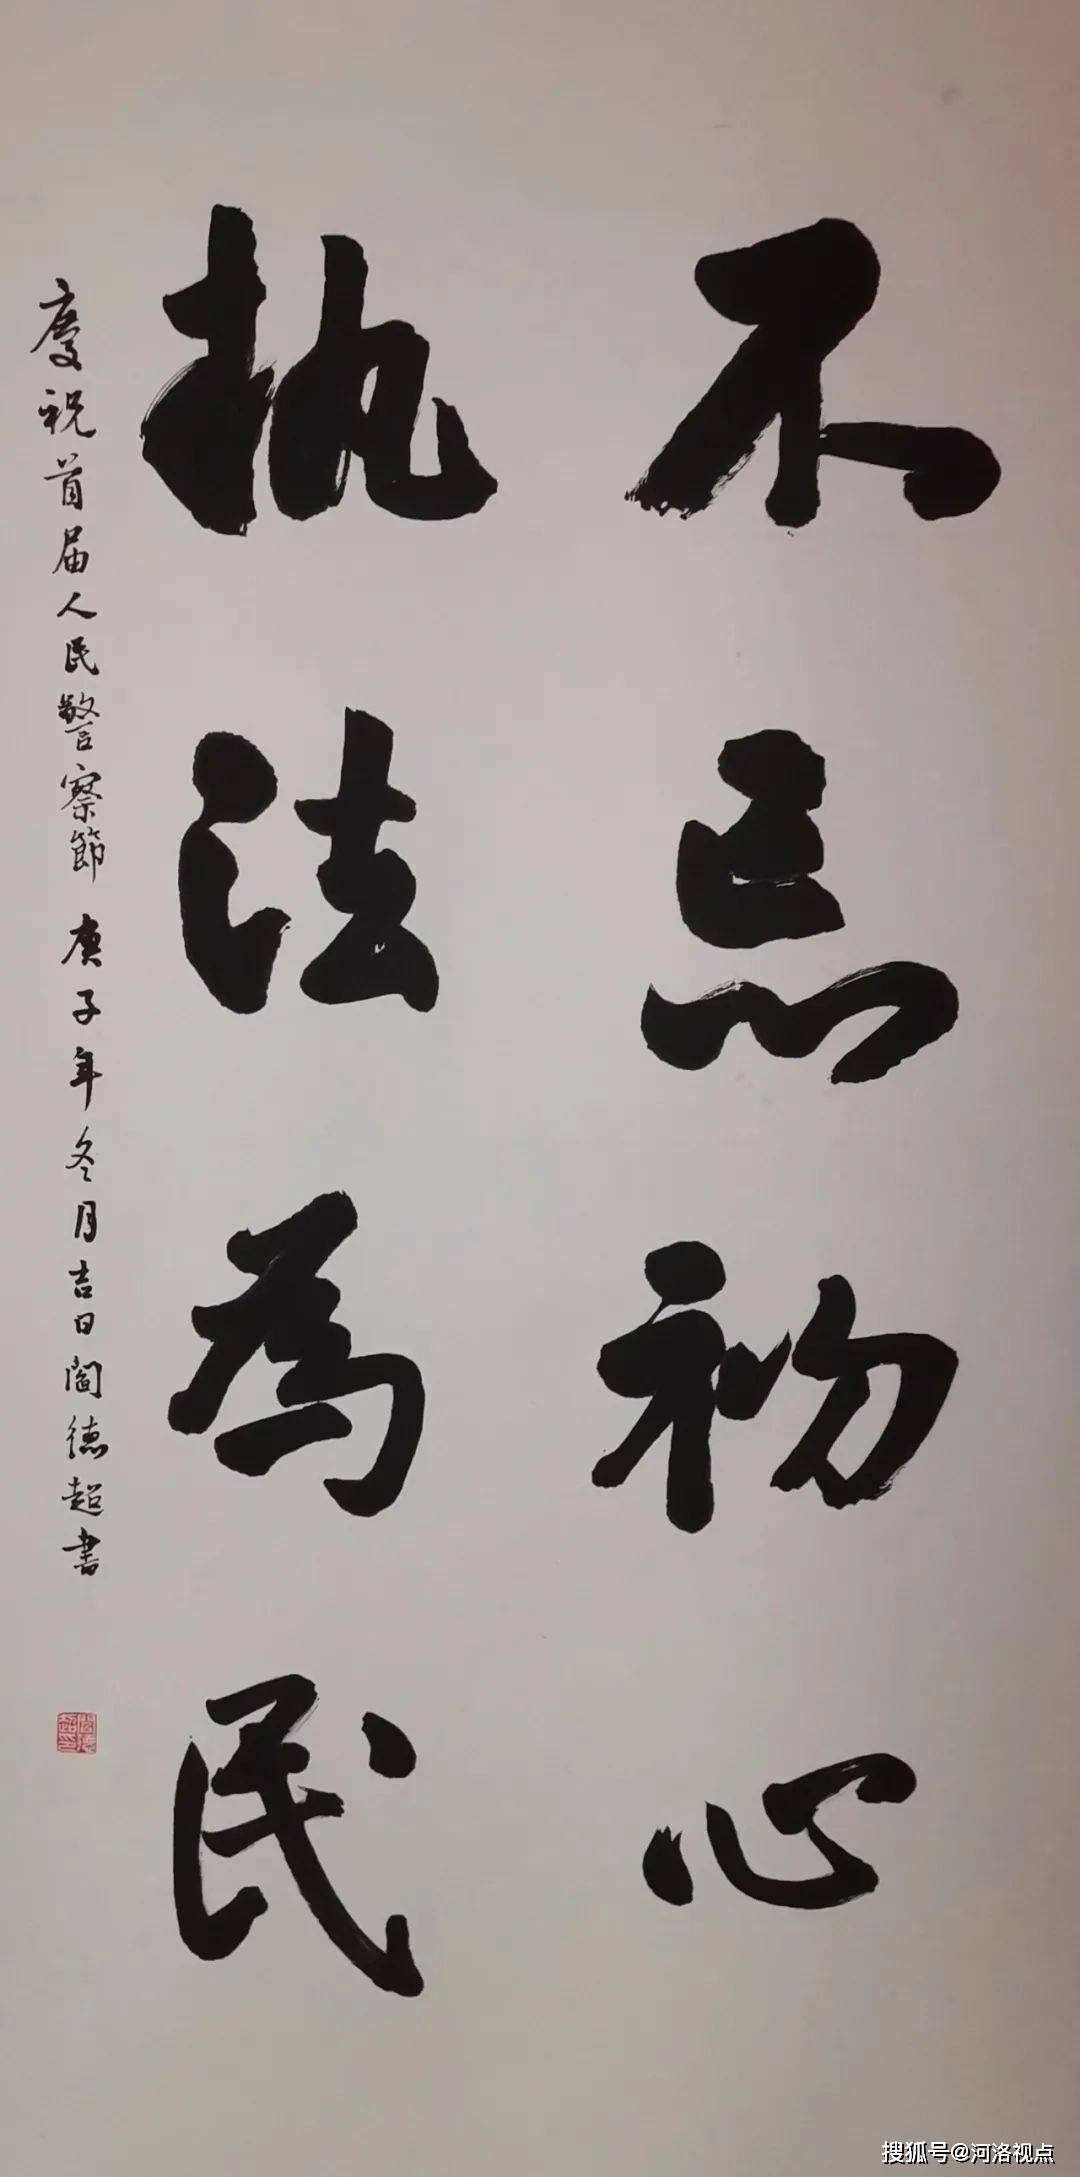 不忘初心
执法為民
慶祝首届人民警察節 庚子年冬月吉日閻德超書
閻德超印
搜狐号@河洛视点